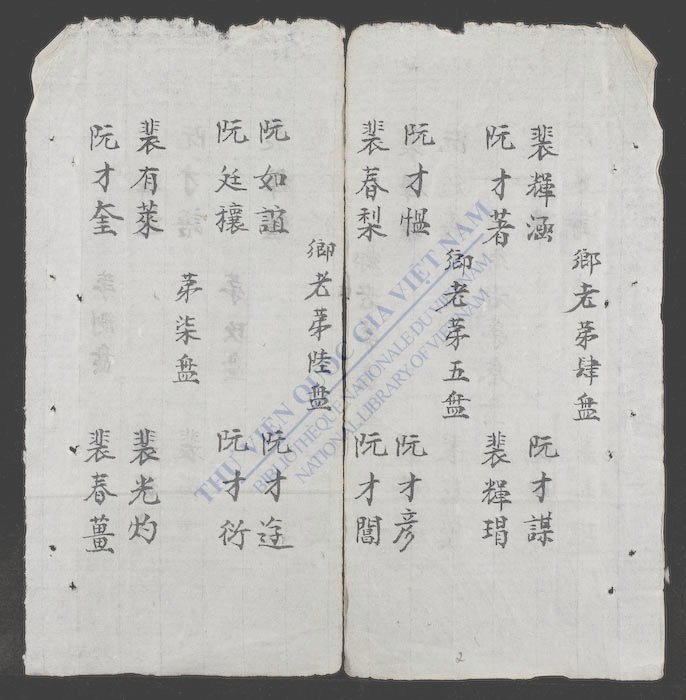 鄉老苐肆盤
裴輝涵
阮才謀
阮才著
裴輝瑁
鄉老苐五盤
阮才愠
阮才彦
裴春梨
阮才闆
鄉老苐陸盤
阮如誼
阮才迳
阮廷穰
阮才衍
苐柒盤
裴有萊
裴光灼
阮才奎
裴春薑
THƯ VIỆN QUỐC GIA VIỆT NAM
BIBLIOTHÈQUE NATIONALE DU VIETNAM
NATIONAL LIBRARY OF VIETNAM
2